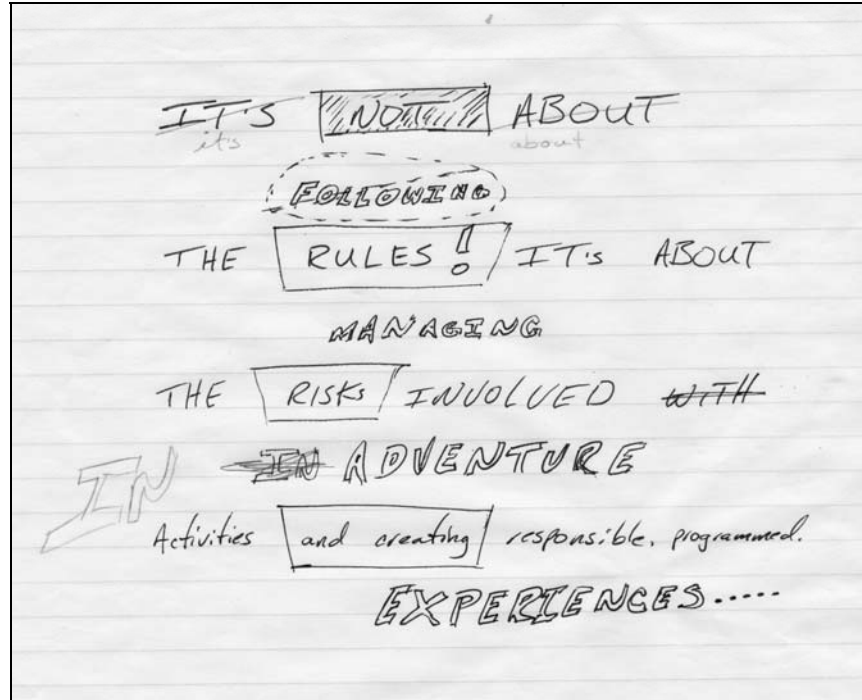 IT'S NOT ABOUT
it's about
FOLLOWING
THE RULES! IT'S ABOUT
MANAGING
THE RISKS INVOLVED WITH
IN IN ADVENTURE
Activities and creating responsible. programmed.
EXPERIENCES.....